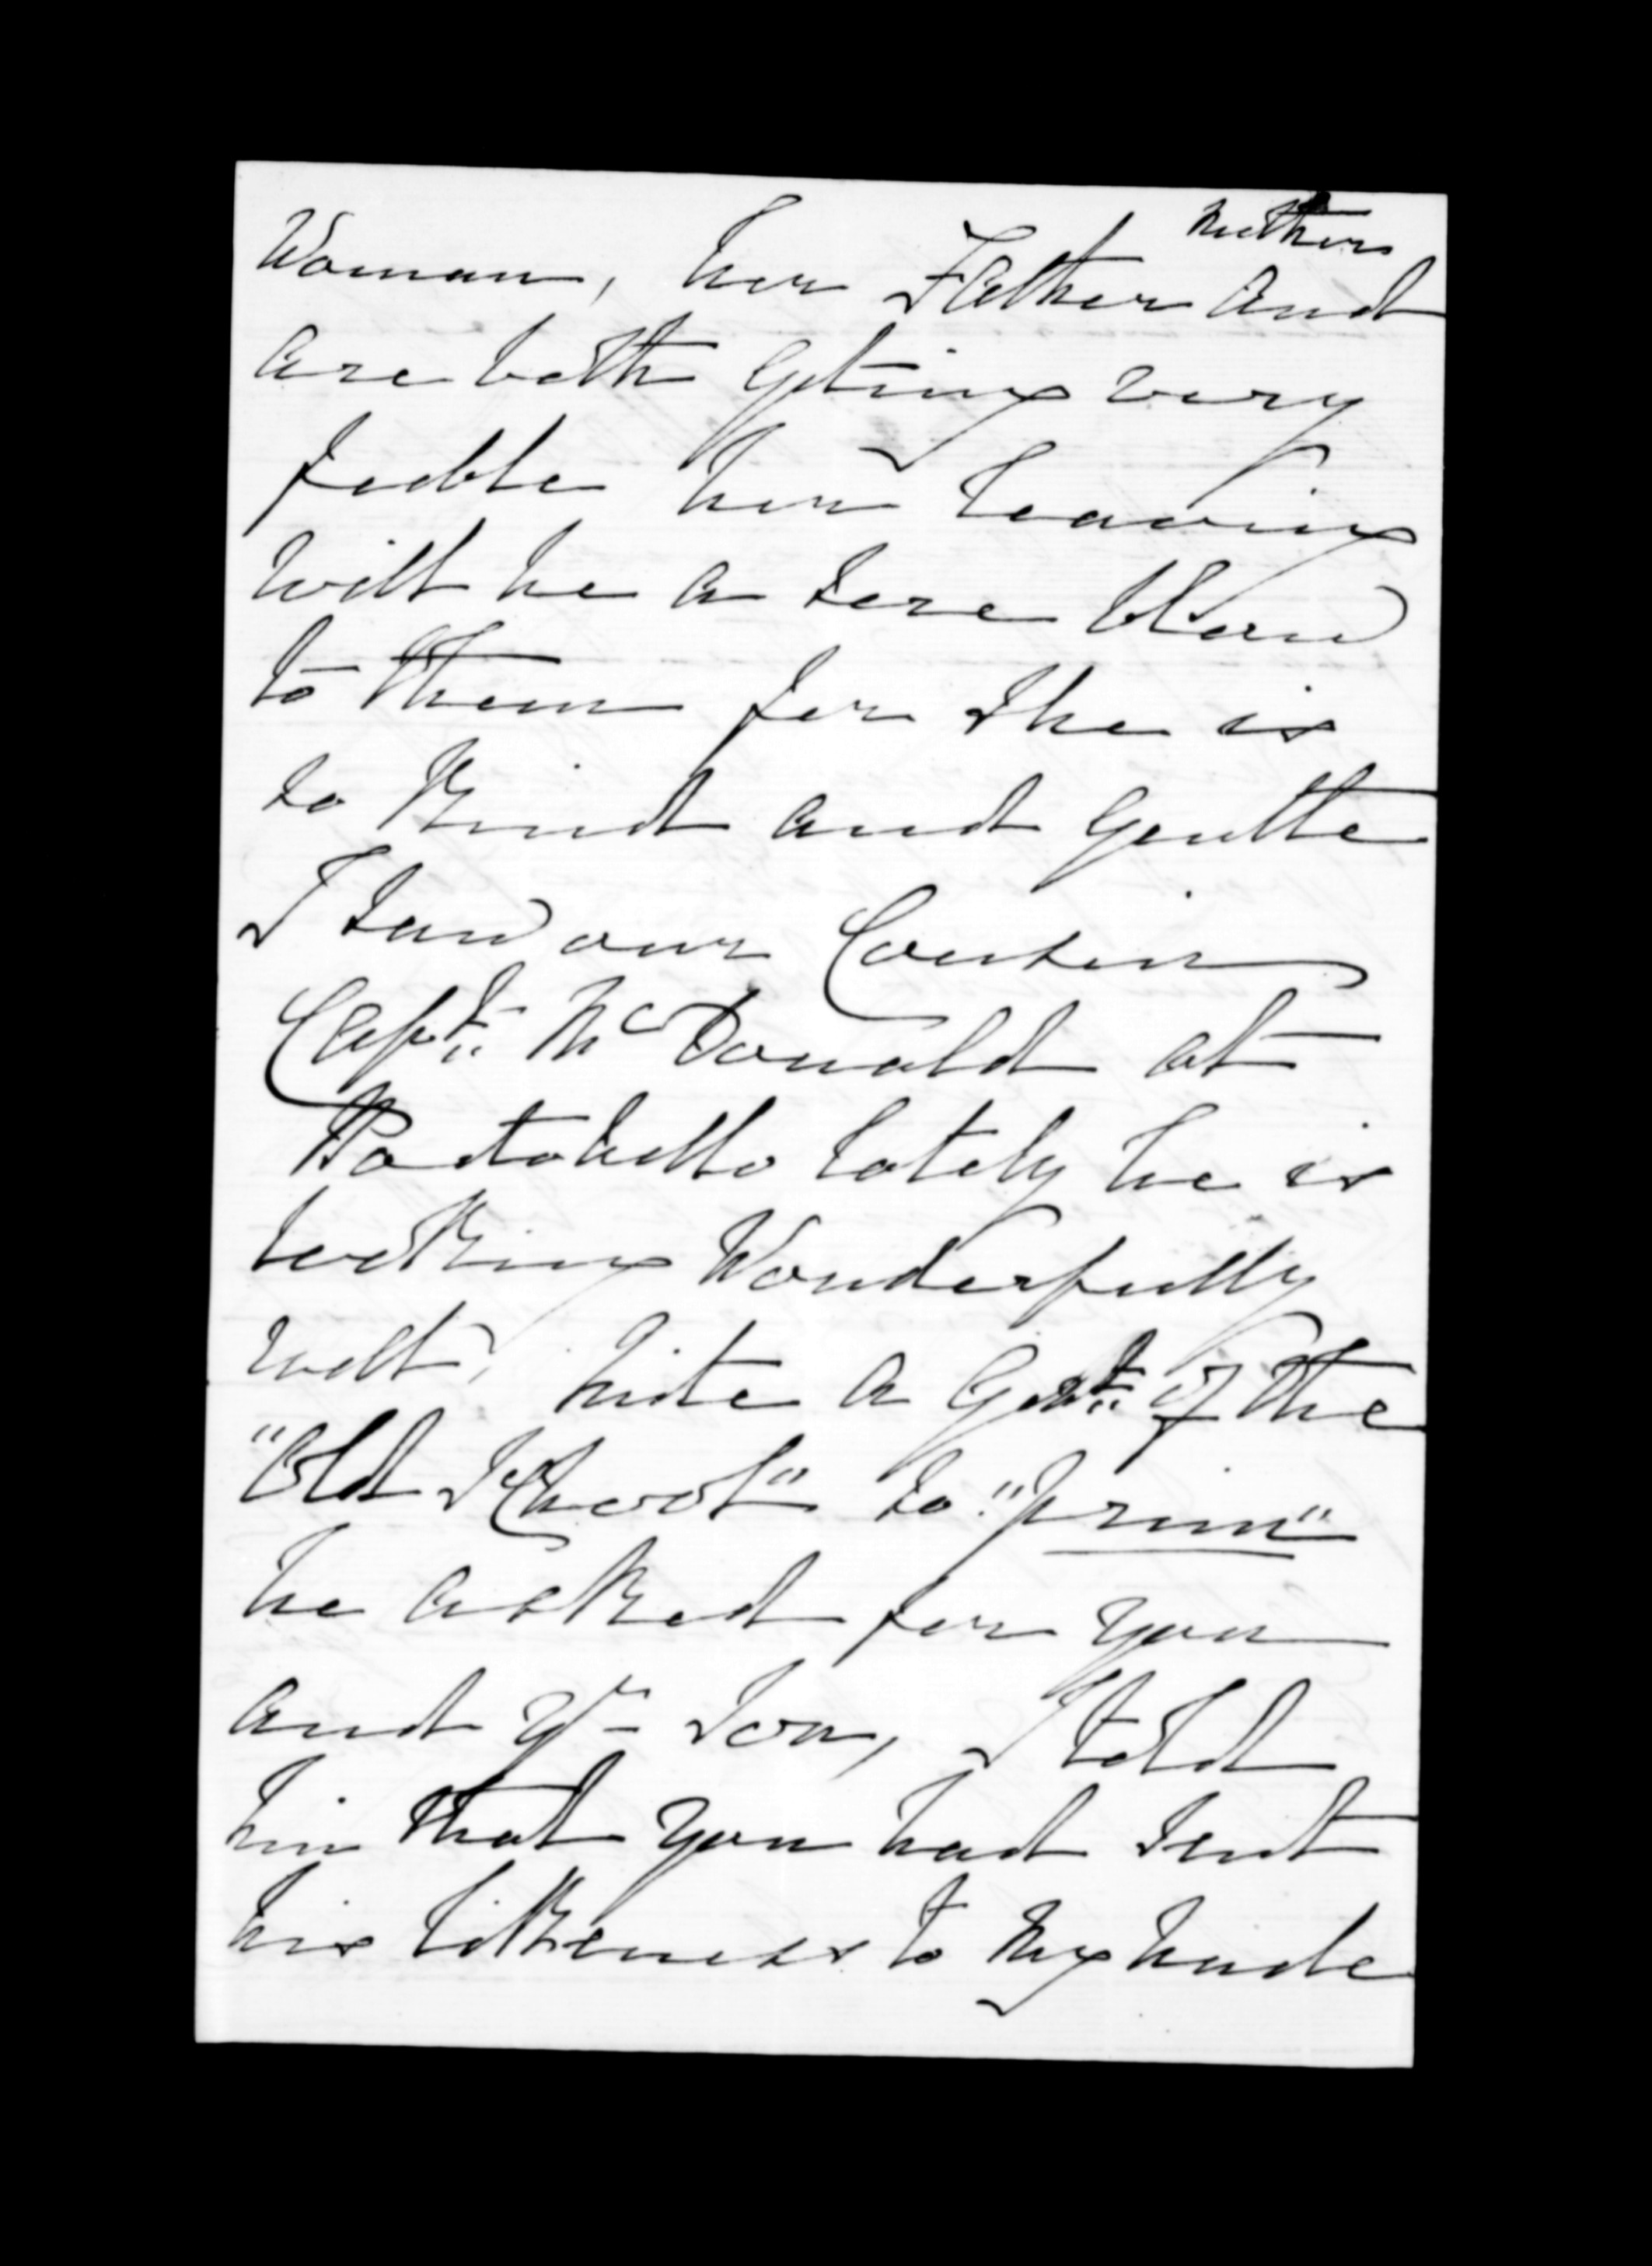 Woman, her Father and Mother
are both geting very
feeble her leaving
will be a sore blow
to them for she is
so kind and gentle
I saw our Cousin
Capt. McDonald at
Portobello lately he is
looking Wonderfully
well, quite a Gent. of the
"Old School" so "prim"
he asked for you
and yr Son, I told
him that you had sent
his likeness to My Uncle